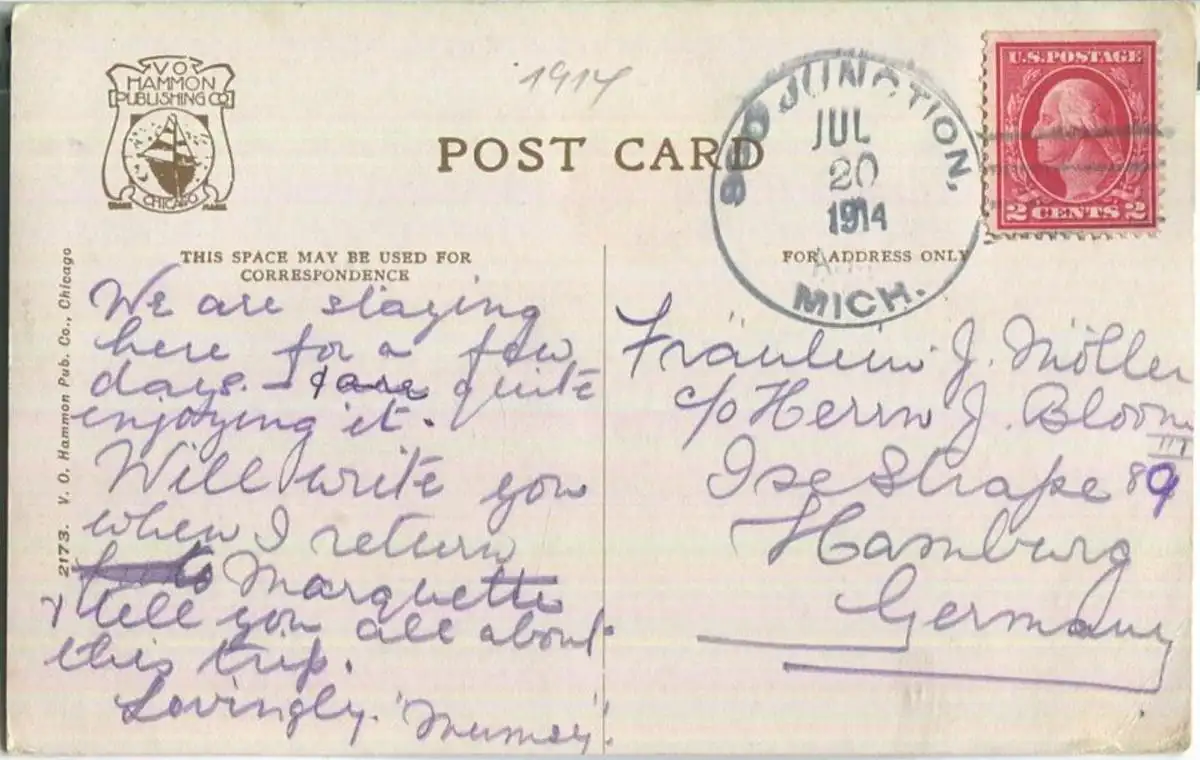 V O
HAMMON
PUBLISHING CO
CHICAGO
1914
POST CARD
SOO JUNCTION,
JUL
20
1914
A.M.
MICH.
U.S. POSTAGE
2 CENTS 2
THIS SPACE MAY BE USED FOR
CORRESPONDENCE
FOR ADDRESS ONLY
2173. V. O. Hammon Pub. Co., Chicago
We are staying
here for a few
days. – & are quite
enjoying it.
Will write you
when I return
Marquette
& tell you all about
this trip.
Lovingly. "Mumsy".
Fräulein J. Möller
c/o Herrn J. Bloom
III
Ise Straße 89
Hamburg
Germany